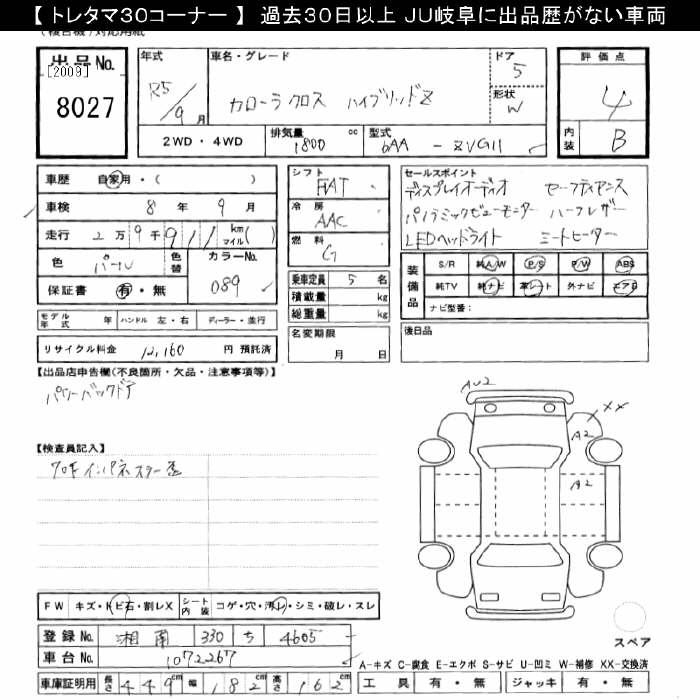 【 トレタマ30コーナー 】 過去30日以上 JU岐阜に出品歴がない車両
出品No.
[2009]
8027
年式
R5/9月
車名・グレード
カローラクロス ハイブリッドZ
ドア
5
形状
W
評価点
4
内装
B
2WD・4WD
排気量
1800cc
型式
6AA - ZVG11
車歴 自家用・( )
車検 8年 9月
走行 2万9千911 km マイル( )
色 パール
色替
カラーNo.
089
保証書 有・無
モデル年式 年 ハンドル 左・右 ディーラー・並行
リサイクル料金 12,160 円 預託済
シフト
FAT
冷房
AAC
燃料
G
乗車定員 5 名
積載量 kg
総重量 kg
名変期限
月 日
セールスポイント
ディスプレイオーディオ セーフティセンス
パノラミックビューモニター ハーフレザー
LEDヘッドライト シートヒーター
装備品
S/R 純A/W P/S P/W ABS
純TV 純ナビ 革シート 外ナビ エアB
ナビ型番:
後日品
【出品店申告欄(不良箇所・欠品・注意事項等)】
パワーバックドア
【検査員記入】
AU2
XX
A2
A2
FW キズ・トビ石・割レX
シート内装 コゲ・穴・汚レ・シミ・破レ・スレ
登録No. 湘南 330 ち 4605
車台No. 1072267
車庫証明用 長さ 449cm 幅 182cm 高さ 162cm
スペア
A-キズ C-腐食 E-エクボ S-サビ U-凹ミ W-補修 XX-交換済
工具 有・無 ジャッキ 有・無